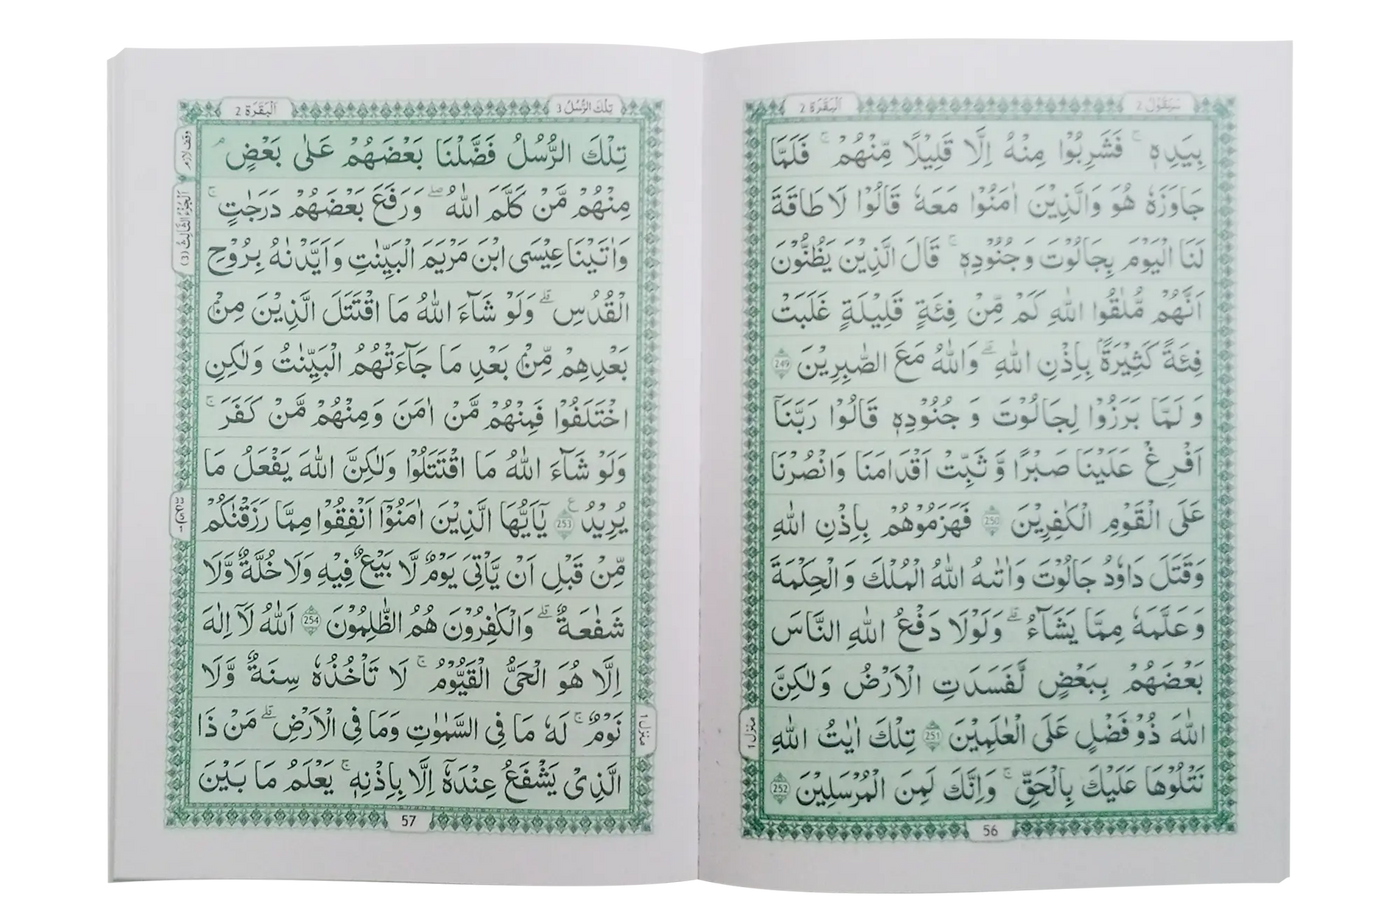 سَيَقُوْلُ 2
اَلْبَقَرَة 2
بِيَدِهٖ ۚ فَشَرِبُوْا مِنْهُ اِلَّا قَلِيْلًا مِّنْهُمْ ۚ فَلَمَّا
جَاوَزَهٗ هُوَ وَالَّذِيْنَ اٰمَنُوْا مَعَهٗ قَالُوْا لَا طَاقَةَ
لَنَا الْيَوْمَ بِجَالُوْتَ وَجُنُوْدِهٖ ۚ قَالَ الَّذِيْنَ يَظُنُّوْنَ
اَنَّهُمْ مُّلٰقُوا اللّٰهِ كَمْ مِّنْ فِئَةٍ قَلِيْلَةٍ غَلَبَتْ
فِئَةً كَثِيْرَةًۢ بِاِذْنِ اللّٰهِ ۗ وَاللّٰهُ مَعَ الصّٰبِرِيْنَ 249
وَ لَمَّا بَرَزُوْا لِجَالُوْتَ وَ جُنُوْدِهٖ قَالُوْا رَبَّنَاۤ
اَفْرِغْ عَلَيْنَا صَبْرًا وَّ ثَبِّتْ اَقْدَامَنَا وَانْصُرْنَا
عَلَى الْقَوْمِ الْكٰفِرِيْنَ 250 فَهَزَمُوْهُمْ بِاِذْنِ اللّٰهِ
وَقَتَلَ دَاوٗدُ جَالُوْتَ وَاٰتٰىهُ اللّٰهُ الْمُلْكَ وَ الْحِكْمَةَ
وَعَلَّمَهٗ مِمَّا يَشَآءُ ۗ وَلَوْلَا دَفْعُ اللّٰهِ النَّاسَ
بَعْضَهُمْ بِبَعْضٍ لَّفَسَدَتِ الْاَرْضُ وَلٰكِنَّ
اللّٰهَ ذُوْ فَضْلٍ عَلَى الْعٰلَمِيْنَ 251 تِلْكَ اٰيٰتُ اللّٰهِ
نَتْلُوْهَا عَلَيْكَ بِالْحَقِّ ۚ وَاِنَّكَ لَمِنَ الْمُرْسَلِيْنَ 252
منزل ١
56
تِلْكَ الرُّسُلُ 3
اَلْبَقَرَة 2
وقف لازم
اَلْجُزْءُ الثَّالِثُ (3)
تِلْكَ الرُّسُلُ فَضَّلْنَا بَعْضَهُمْ عَلٰى بَعْضٍ ۘ
مِنْهُمْ مَّنْ كَلَّمَ اللّٰهُ ۖ وَرَفَعَ بَعْضَهُمْ دَرَجٰتٍ ۚ
وَاٰتَيْنَا عِيْسَى ابْنَ مَرْيَمَ الْبَيِّنٰتِ وَاَيَّدْنٰهُ بِرُوْحِ
الْقُدُسِ ۗ وَلَوْ شَآءَ اللّٰهُ مَا اقْتَتَلَ الَّذِيْنَ مِنْۢ
بَعْدِهِمْ مِّنْۢ بَعْدِ مَا جَآءَتْهُمُ الْبَيِّنٰتُ وَلٰكِنِ
اخْتَلَفُوْا فَمِنْهُمْ مَّنْ اٰمَنَ وَمِنْهُمْ مَّنْ كَفَرَ ۚ
وَلَوْ شَآءَ اللّٰهُ مَا اقْتَتَلُوْا وَلٰكِنَّ اللّٰهَ يَفْعَلُ مَا
يُرِيْدُ ع 253 يٰۤاَيُّهَا الَّذِيْنَ اٰمَنُوْۤا اَنْفِقُوْا مِمَّا رَزَقْنٰكُمْ
مِّنْ قَبْلِ اَنْ يَّاْتِيَ يَوْمٌ لَّا بَيْعٌ فِيْهِ وَلَا خُلَّةٌ وَّلَا
شَفٰعَةٌ ۗ وَالْكٰفِرُوْنَ هُمُ الظّٰلِمُوْنَ 254 اَللّٰهُ لَاۤ اِلٰهَ
اِلَّا هُوَ الْحَيُّ الْقَيُّوْمُ ۚ لَا تَاْخُذُهٗ سِنَةٌ وَّلَا
نَوْمٌ ۚ لَهٗ مَا فِى السَّمٰوٰتِ وَمَا فِى الْاَرْضِ ۗ مَنْ ذَا
الَّذِيْ يَشْفَعُ عِنْدَهٗۤ اِلَّا بِاِذْنِهٖ ۚ يَعْلَمُ مَا بَيْنَ
منزل ١
57